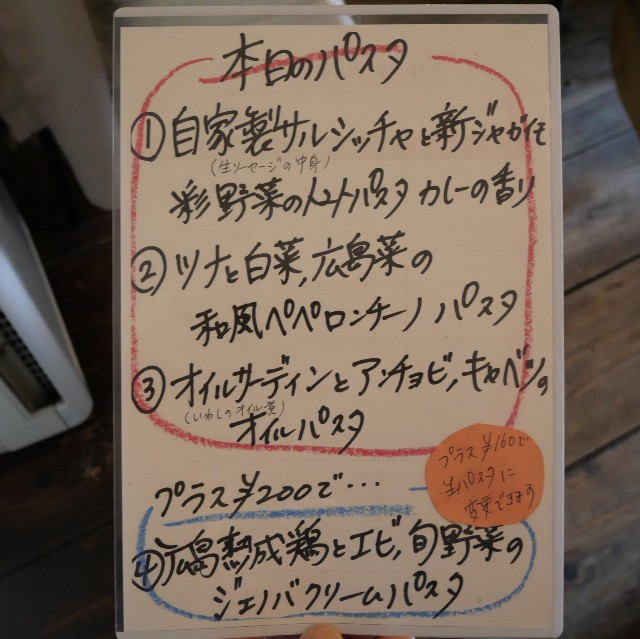 本日のパスタ
① 自家製サルシッチャと新ジャガイモ
(生ソーセージの中身)
彩野菜のトマトパスタ カレーの香り
② ツナと白菜,広島菜の
和風ペペロンチーノ パスタ
③ オイルサーディンとアンチョビ,キャベツの
(いわしのオイル煮)
オイルパスタ
プラス¥160で
生パスタに
変更できます
プラス¥200で・・・
④ 広島熟成鶏とエビ,旬野菜の
ジェノバクリームパスタ